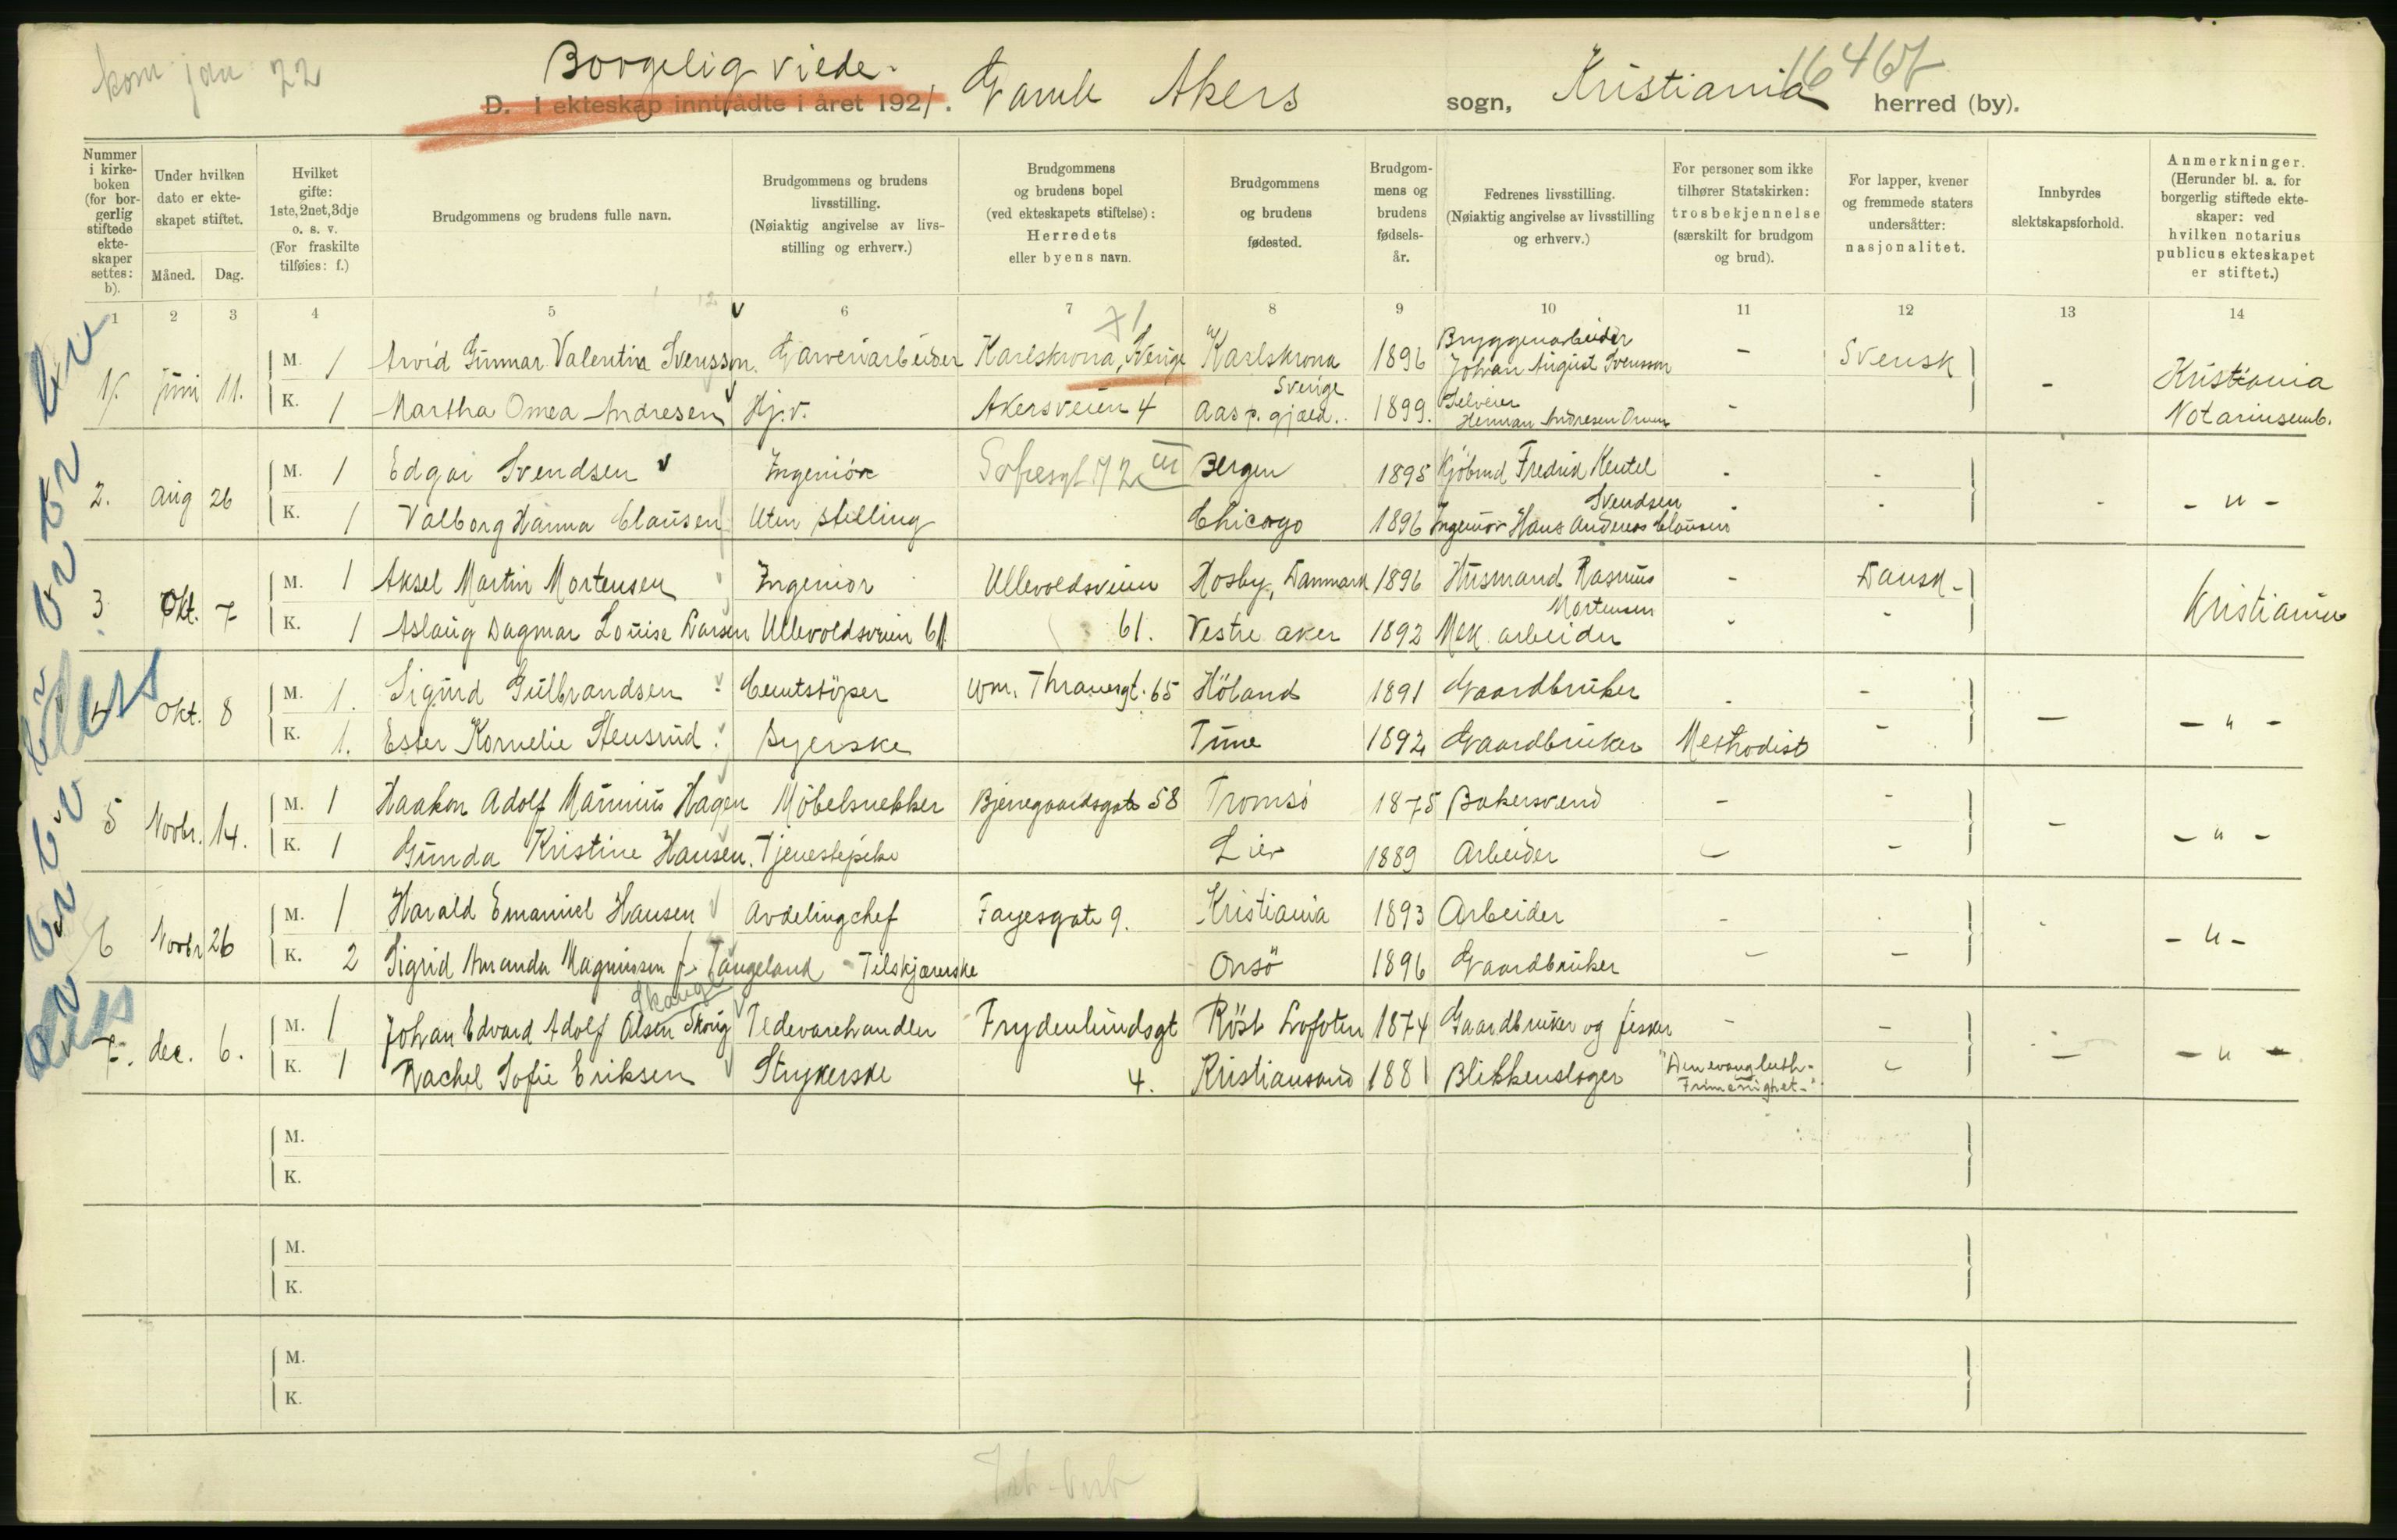 kom jan 22
Borgelig viede.
D. I ekteskap inntrådte i året 1921. Gamle Akers sogn, Kristiania herred (by).
Nummer i kirkeboken (for borgerlig stiftede ekteskaper settes: b).
Under hvilken dato er ekteskapet stiftet.
Måned. Dag.
Hvilket gifte: 1ste, 2net, 3dje o. s. v. (For fraskilte tilføies: f.)
Brudgommens og brudens fulle navn.
Brudgommens og brudens livsstilling. (Nøiaktig angivelse av livsstilling og erhverv.)
Brudgommens og brudens bopel (ved ekteskapets stiftelse): Herredets eller byens navn.
Brudgommens og brudens fødested.
Brudgommens og brudens fødselsår.
Fedrenes livsstilling. (Nøiaktig angivelse av livsstilling og erhverv.)
For personer som ikke tilhører Statskirken: trosbekjennelse (særskilt for brudgom og brud).
For lapper, kvener og fremmede staters undersåtter: nasjonalitet.
Innbyrdes slektskapsforhold.
Anmerkninger. (Herunder bl. a. for borgerlig stiftede ekteskaper: ved hvilken notarius publicus ekteskapet er stiftet.)
1 2 3 4 5 6 7 8 9 10 11 12 13 14
1. juni 11. M. 1 Arvid Gunnar Valentin Svensson. Garveriarbeider Karlskrona, Sverige Karlskrona Sverige 1896 Bryggeriarbeider Johan August Svensson - Svensk - Kristiania Notariusemb.
K. 1 Martha Omea Andresen Hj.v. Akersveien 4 Aas p. gjæld. 1899. Selveier Herman Andresen -
2. Aug 26 M. 1 Edgar Svendsen Ingeniör Sofiesgt 72 III Bergen 1895 Kjöbmd Fredrik Svendsen - - - - " -
K. 1 Valborg Hanna Clausen Uten stilling Chicago 1896 Ingeniör Hans Andreas Clausen
3. Okt. 7 M. 1 Aksel Martin Mortensen Ingeniör Ullevoldsveien 61. Hosby, Danmark 1896 Husmand Rasmus Mortensen - Dansk - Kristiania
K. 1 Aslaug Dagmar Louise Larsen Ullevoldsveien 61 Vestre aker 1892 Mek. arbeider - -
4 Okt. 8 M. 1. Sigurd Gulbrandsen Cemtstöper Wm. Thranesgt. 65 Höland 1891 Gaardbruker - - - - " -
K. 1. Ester Kornelie Stensrud. Syerske Tune 1892 Gaardbruker Methodist -
5 Novbr. 14. M. 1 Haakon Adolf Magnus Hagen Möbelsnekker Bjerregaardsgate 58 Tromsö 1875 Bakersvend - - - - " -
K. 1 Gunda Kristine Hansen. Tjenestepike Lier 1889 Arbeider - -
6 Novbr 26 M. 1 Harald Emanuel Hansen Avdelingchef Fayesgate 9. Kristiania 1893 Arbeider - - - " -
K. 2 Sigrid Amanda Magnussen f. Tangeland Tilskjærerske Onsö 1896 Gaardbruker - -
7. dec. 6. M. 1 Johan Edvard Adolf Olsen Skoug Skauge Uldevarehandler Frydenlundsgt 4. Röst Lofoten 1874 Gaardbruker og fisker - - - - " -
K. 1 Rachel Sofie Eriksen Strykerske Kristiansand 1881 Blikkenslager "Den evang luth. Frimenighet" -
M.
K.
M.
K.
M.
K.